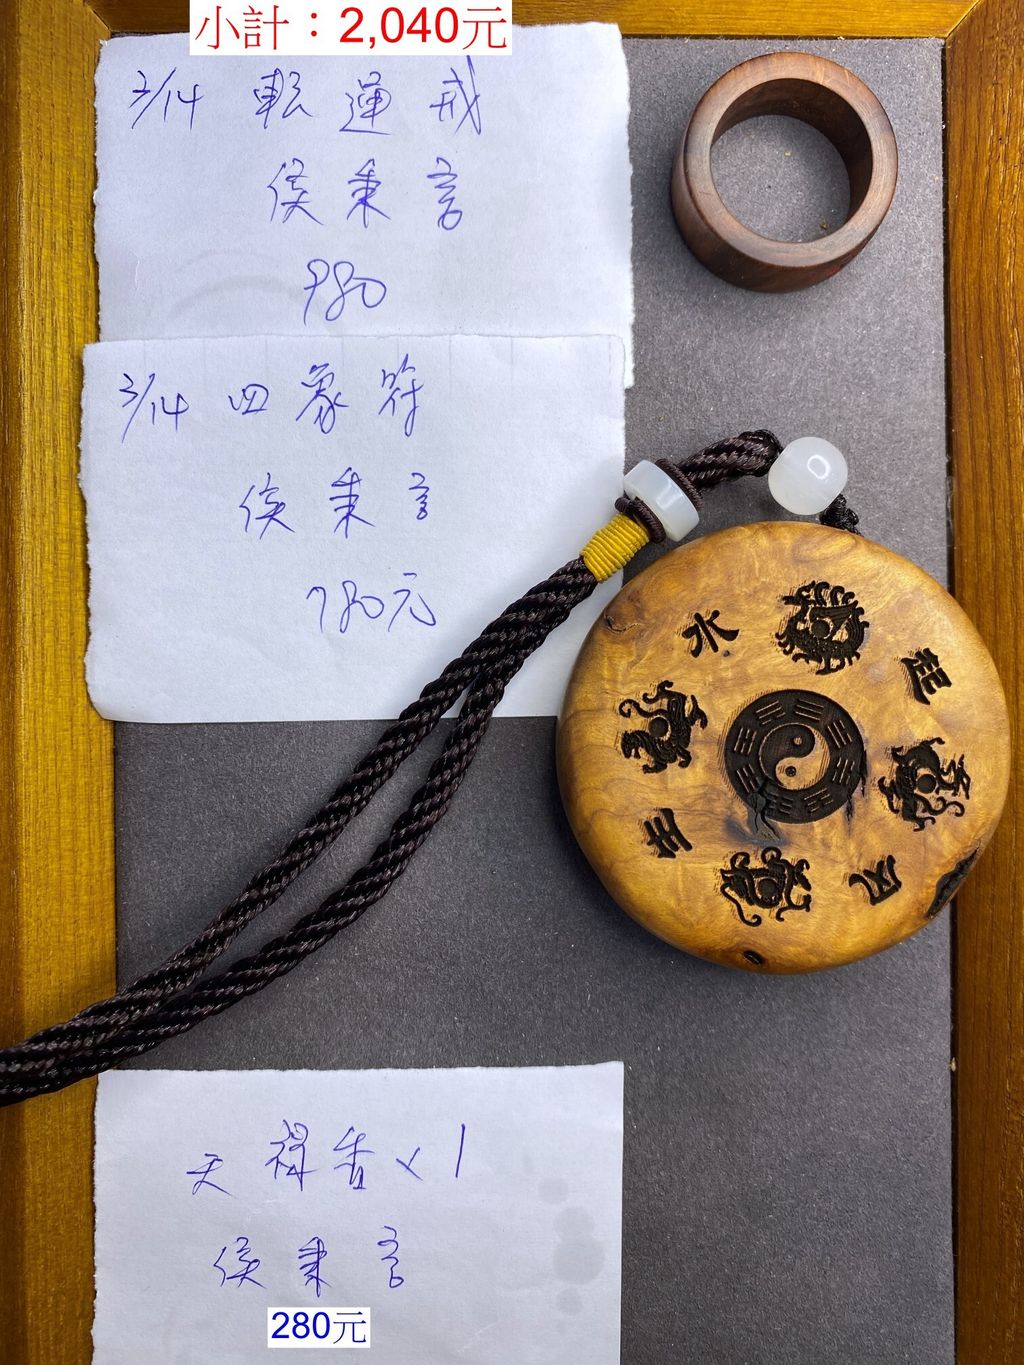 小計：2,040元
3/14 転運戒
侯秉言
980
3/14 四象符
侯秉言
780元
水
起
生
风
天禄香x1
侯秉言
280元